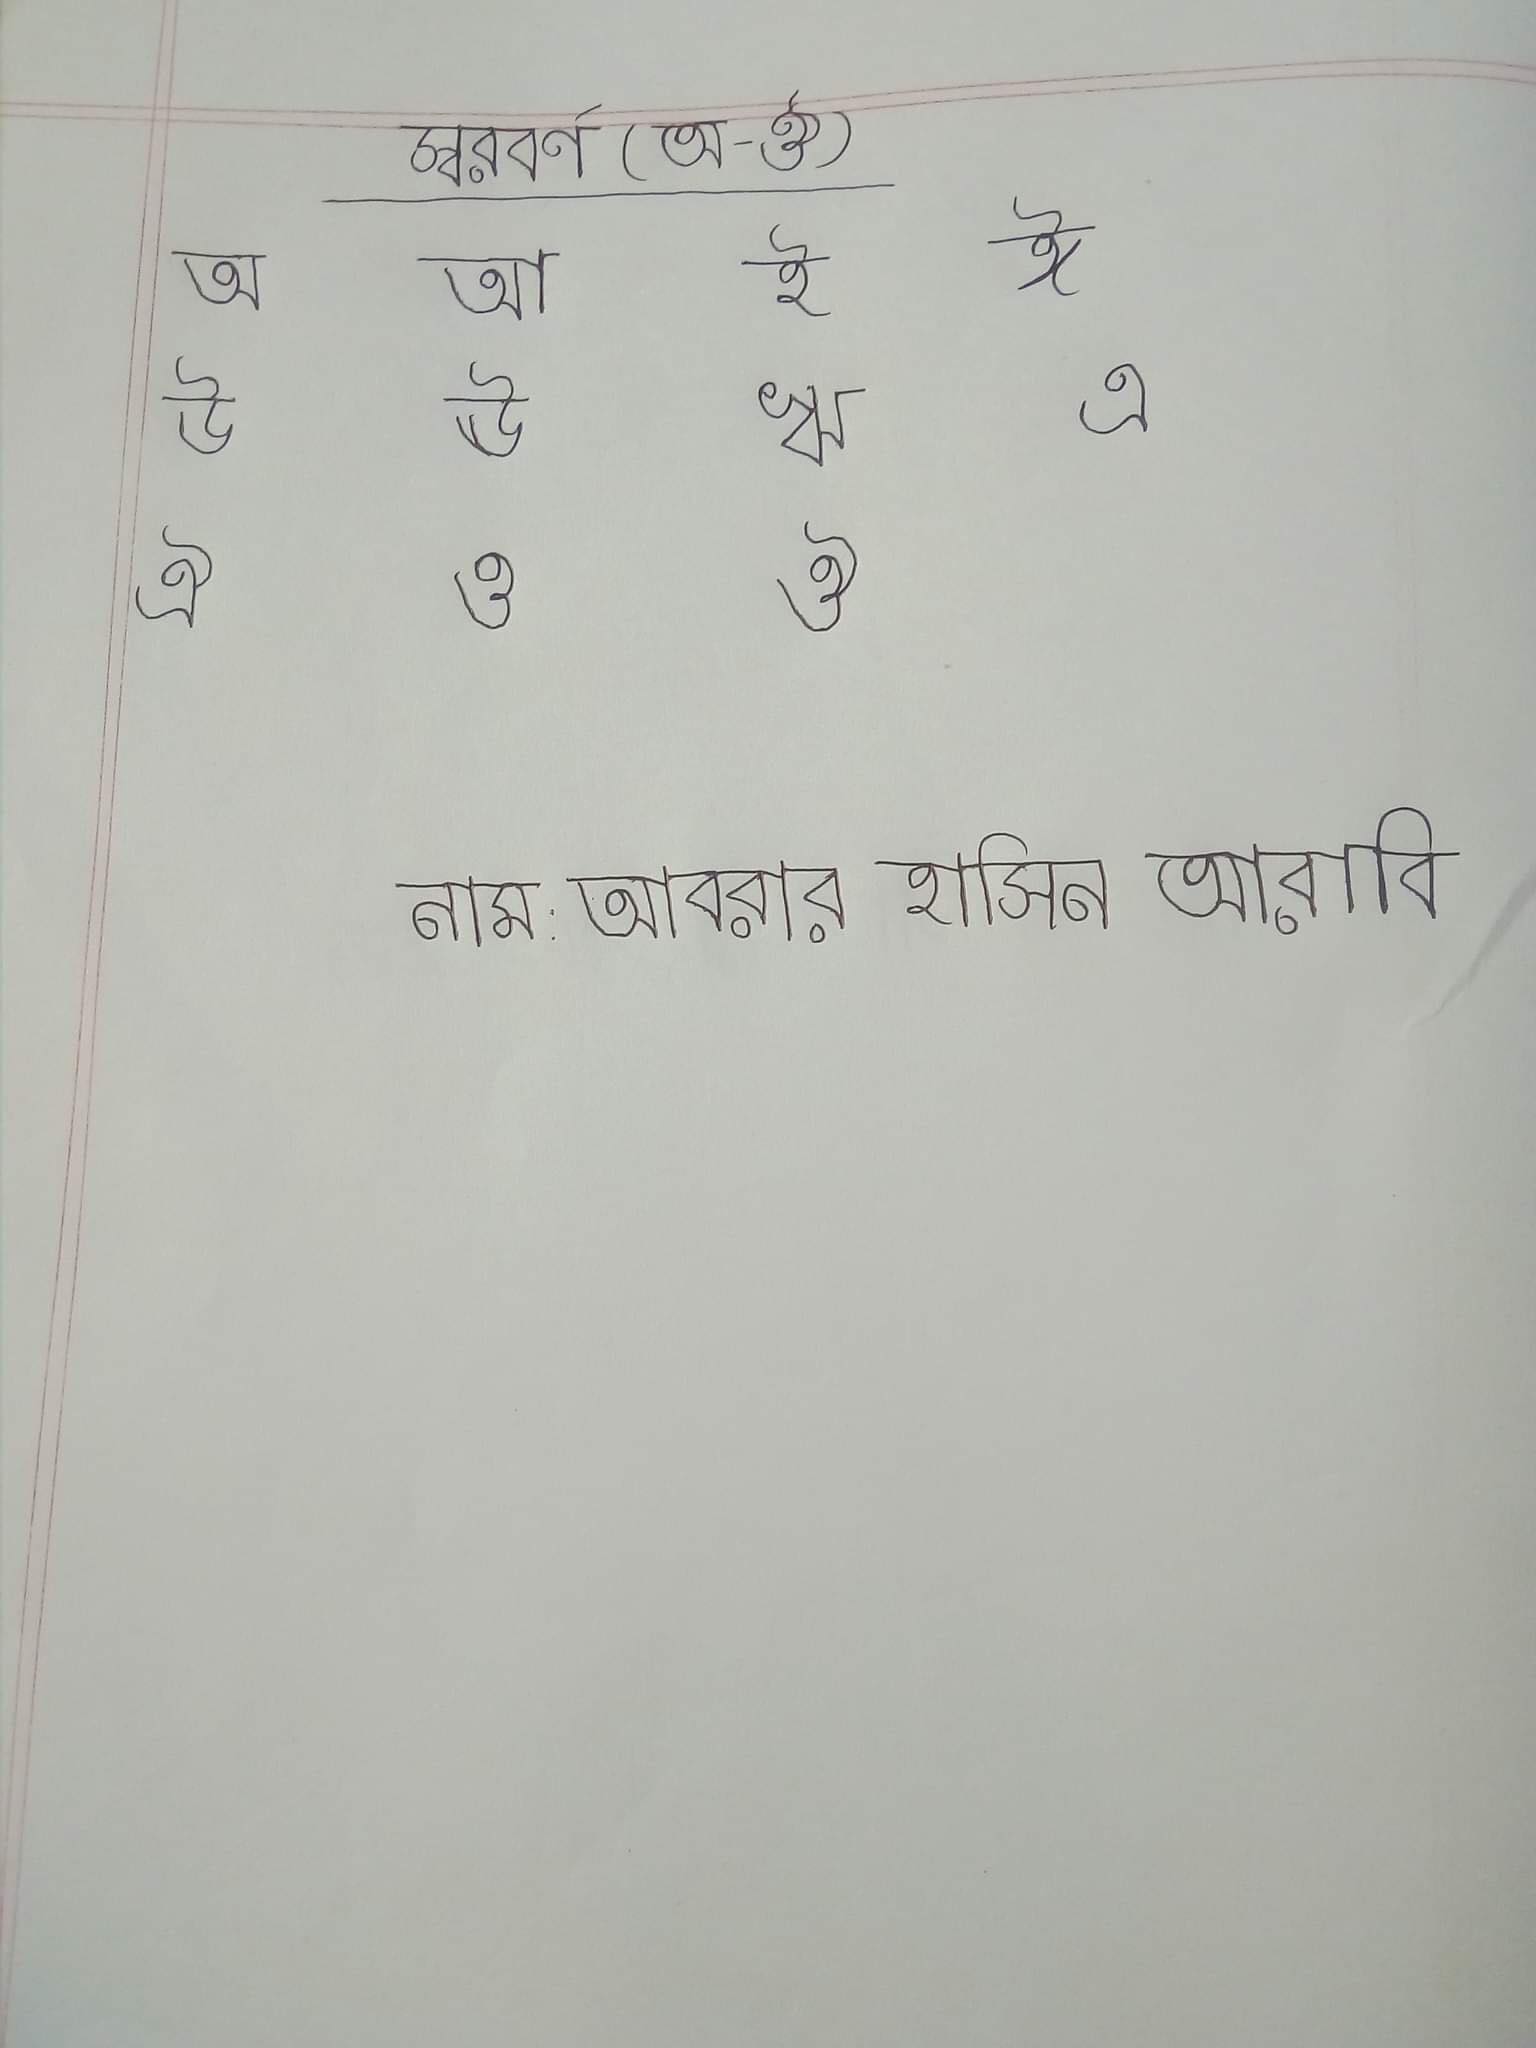 স্বরবর্ণ (অ-ঔ)
অ আ ই ঈ
উ ঊ ঋ এ
ঐ ও ঔ
নাম: আবরার হাসিন আরাবি